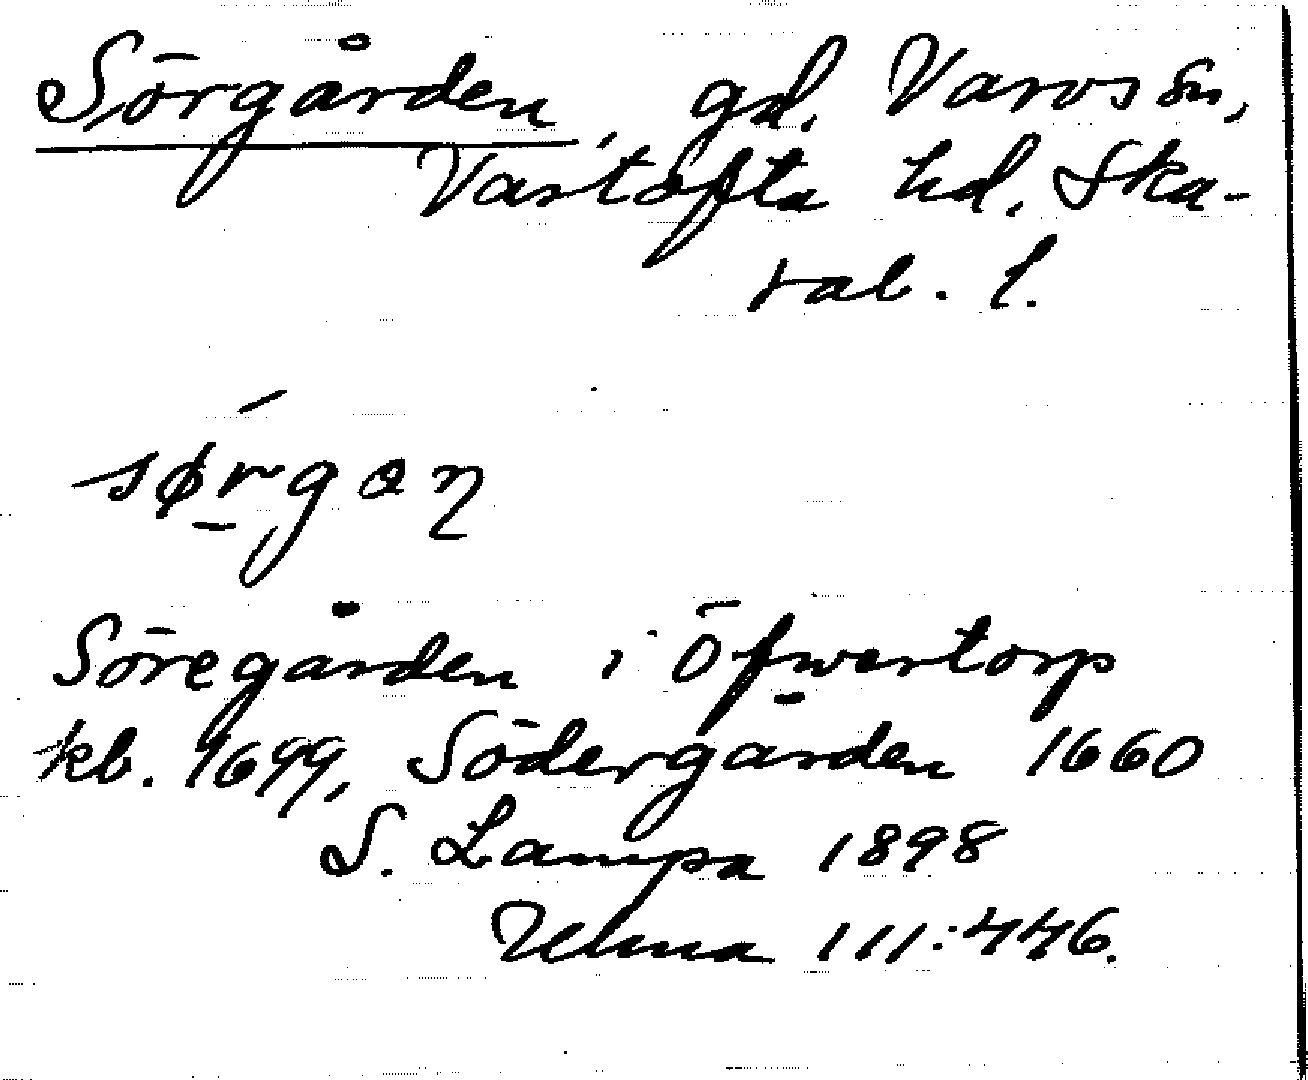 Sörgården, gd. Varvs sn,
Vartofta hd. Ska-
rab. l.
sørgaɳ
Söregården i Öfwertorp
kb. 1699, Södergården 1660
S. Lampa 1898
Ulma 111:446.